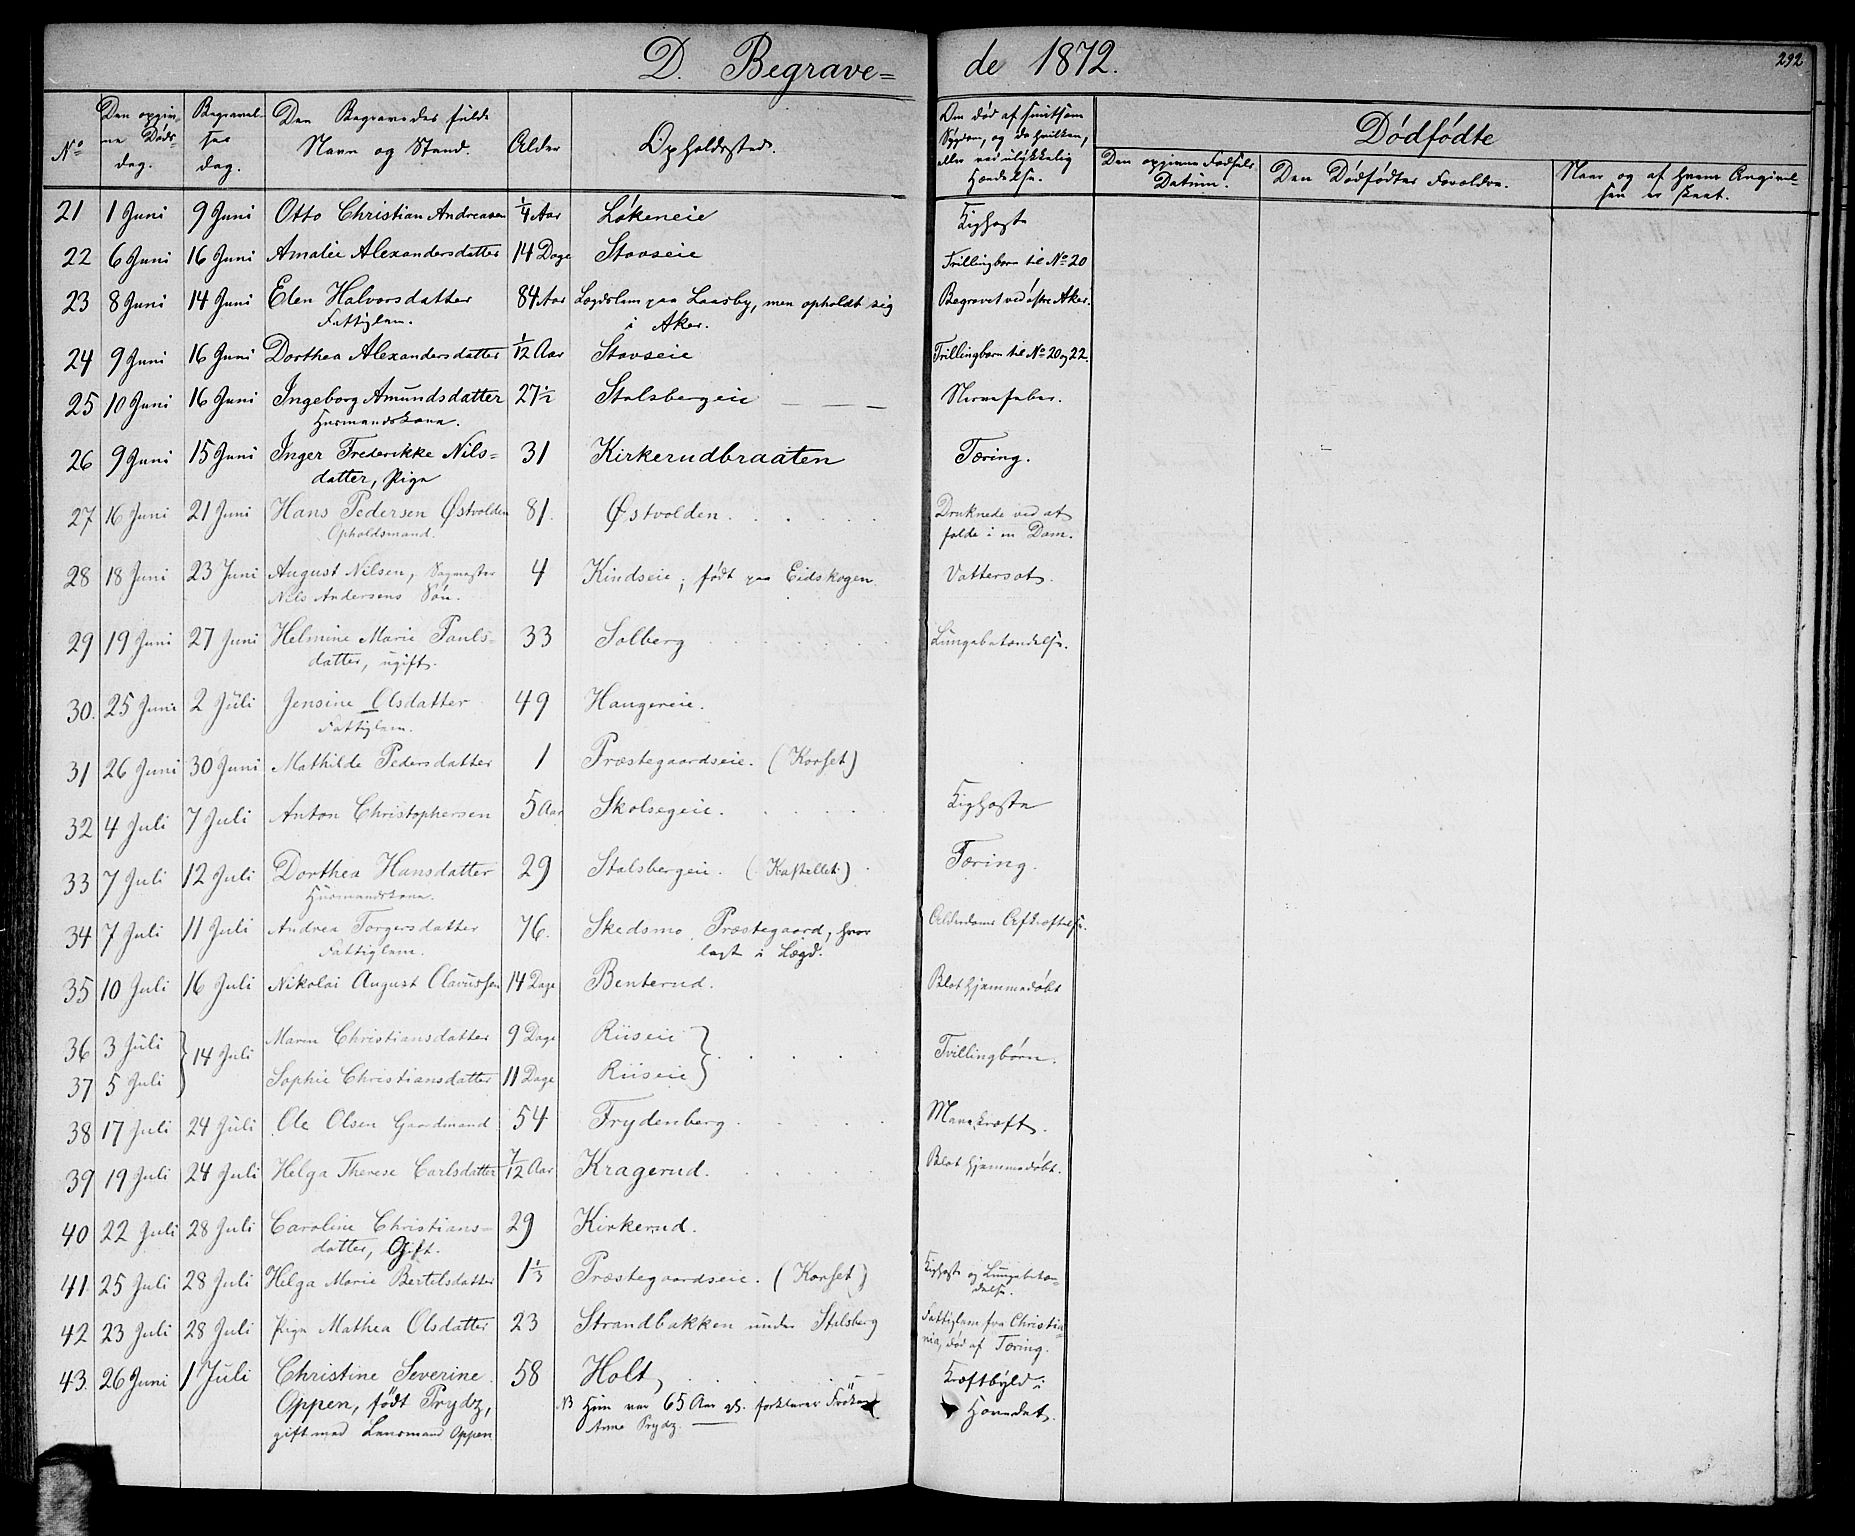 D. Begrave=
de 1872.
292
No
Den opgiv-
ne Døds-
dag.
Begravel-
ses
dag.
Den Begravedes fulde
Navn og Stand.
Alder
Opholdssted.
Om død af smitsom
Sygdom, og da hvilken,
eller ved ulykkelig
Hændelse.
Dødfødte
Den opgivne Fødsels
Datum.
Den Dødfødtes Forældre.
Naar og af hvem Angivel-
sen er skeet.
21 1 Juni 9 Juni Otto Christian Andreasen 1/4 Aar Løkeneie Kighoste
22 6 Juni 16 Juni Amalie Alexandersdatter 14 Dage Stavseie Trillingbarn til No 20
23 8 Juni 14 Juni Elen Halvorsdatter 84 Aar Lægdslem paa Laasby, men opholdt sig Begravet ved østre Aker.
Fattiglem. i Aker.
24 9 Juni 16 Juni Dorthea Alexandersdatter 1/12 Aar Stavseie Trillingbarn til No 20 og 22.
25 10 Juni 16 Juni Ingeborg Amundsdatter 27 1/2 Stalsbergeie Nervefeber.
Husmandskone.
26 9 Juni 15 Juni Inger Frederikke Nils- 31 Kirkerudbraaten Tæring.
datter, Pige
27 16 Juni 21 Juni Hans Pedersen Østvolden 81. Østvolden. Druknede ved at
Opholdsmand. falde i en Dam.
28 18 Juni 23 Juni August Nilsen, Sagmester 4 Kindseie, født paa Eidskogen. Vattersot.
Nils Andersens Søn.
29 19 Juni 27 Juni Helmine Marie Pauls- 33 Solberg Lungebetændelse.
datter, ugift.
30. 25 Juni 2 Juli Jensine Olsdatter 49 Haugereie.
Fattiglem.
31 26 Juni 30 Juni Mathilde Pedersdatter 1 Præstegaardseie. (Korset)
32 4 Juli 7 Juli Anton Christophersen 5 Aar Skolsegeie. Kighoste
33 7 Juli 12 Juli Dorthea Hansdatter 29 Stalsbergeie. (Kastellet.) Tæring.
Husmandskone.
34 7 Juli 11 Juli Andrea Torgersdatter 76. Skedsmo Præstegaard, hvor Alderdoms Afkræftelse.
Fattiglem. lagt i Lægd.
35 10 Juli 16 Juli Nikolai August Olavussen 14 Dage Benterud. Blot hjemmedøbt
36 3 Juli 14 Juli Maren Christiansdatter 9 Dage Riiseie Tvillingbørn.
37 5 Juli Sophie Christiansdatter 11 Dage Riiseie
38 17 Juli 24 Juli Ole Olsen Gaardmand 54 Frydenberg. Mavekræft.
39 19 Juli 24 Juli Helga Therese Carlsdatter 7/12 Aar Kragerud. Blot hjemmedøbt.
40 22 Juli 28 Juli Caroline Christians- 29 Kirkerud.
datter, Gift.
41. 25 Juli 28 Juli Helga Marie Bertelsdatter 1 1/3 Præstegaardseie. (Korset) Kighoste og Lungebetæn-
delse.
42 23 Juli 28 Juli Pige Mathea Olsdatter 23 Strandbakken under Stalsberg Fattiglem fra Christia-
nia, død af Tæring.
43. 26 Juni 1 Juli Christine Severine 58 Holt Kræftbyld i
Oppen, født Prydz, NB Hun var 65 Aar gl. forklarer Frøken Hovedet.
gift med Lensmand Oppen Anne Prydz.